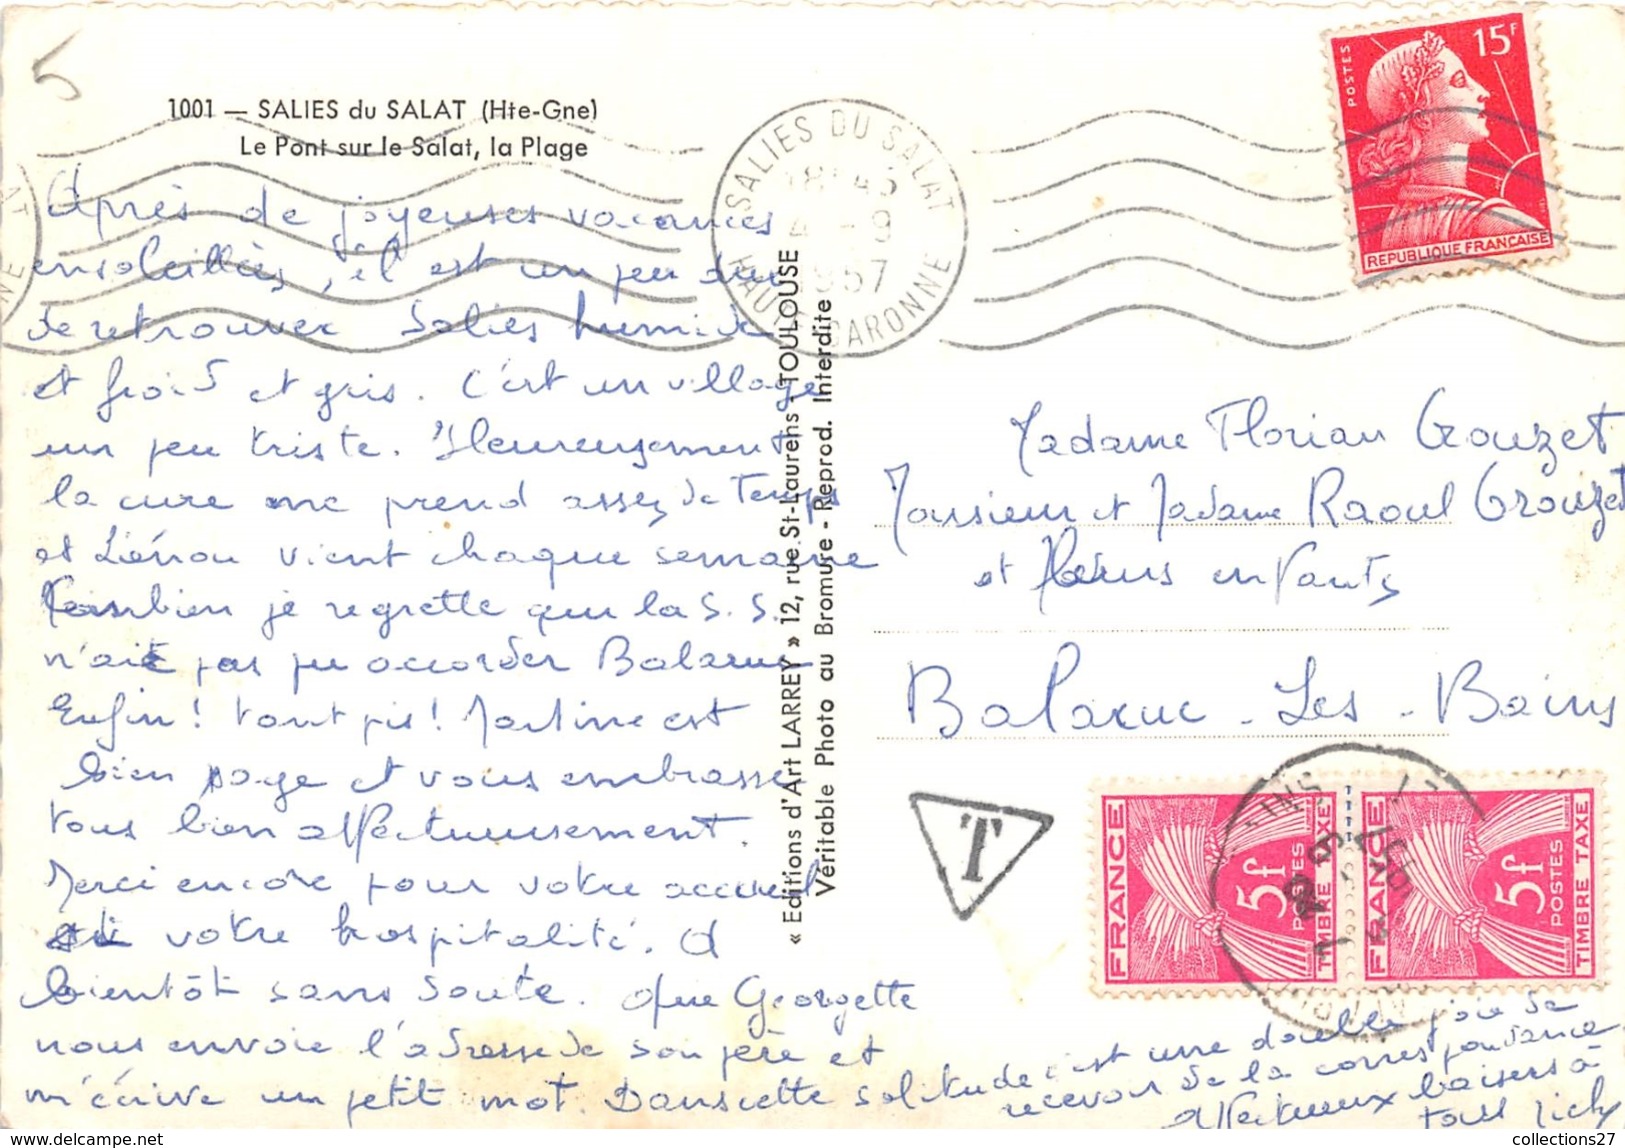 5
1001 — SALIES du SALAT (Hte-Gne)
Le Pont sur le Salat, la Plage
Après de joyeuses vacances
ensoleillées, il est un peu dur
de retrouver Salies humide
et froid et gris. C'est un village
un peu triste. Heureusement
la cure me prend assez de temps
et vient chaque semaine
Combien je regrette que la S.S.
n'ait pas pu accorder Balaruc
Enfin! tant pis! Martine est
bien sage et vous embrasse
tous bien affectueusement.
Merci encore pour votre accueil
votre hospitalité. A
bientôt sans doute. Que Georgette
nous envoie l'adresse de son père et
m'écrive un petit mot. Dans cette solitude c'est une double joie de
recevoir de la correspondance
affectueux baisers à
tous
« Editions d'Art LARREY » 12, rue St-Laurens, TOULOUSE
Véritable Photo au Bromure - Reprod. Interdite
SALIES DU SALAT
18H45
4 - 9
1957
HAUTE GARONNE
15F
POSTES
REPUBLIQUE FRANÇAISE
Madame Florian Grouzet
Monsieur et Madame Raoul Grouzet
et leurs enfants
Balaruc-Les-Bains
T
FRANCE
5f
POSTES
TIMBRE TAXE
FRANCE
5f
POSTES
TIMBRE TAXE
collections27